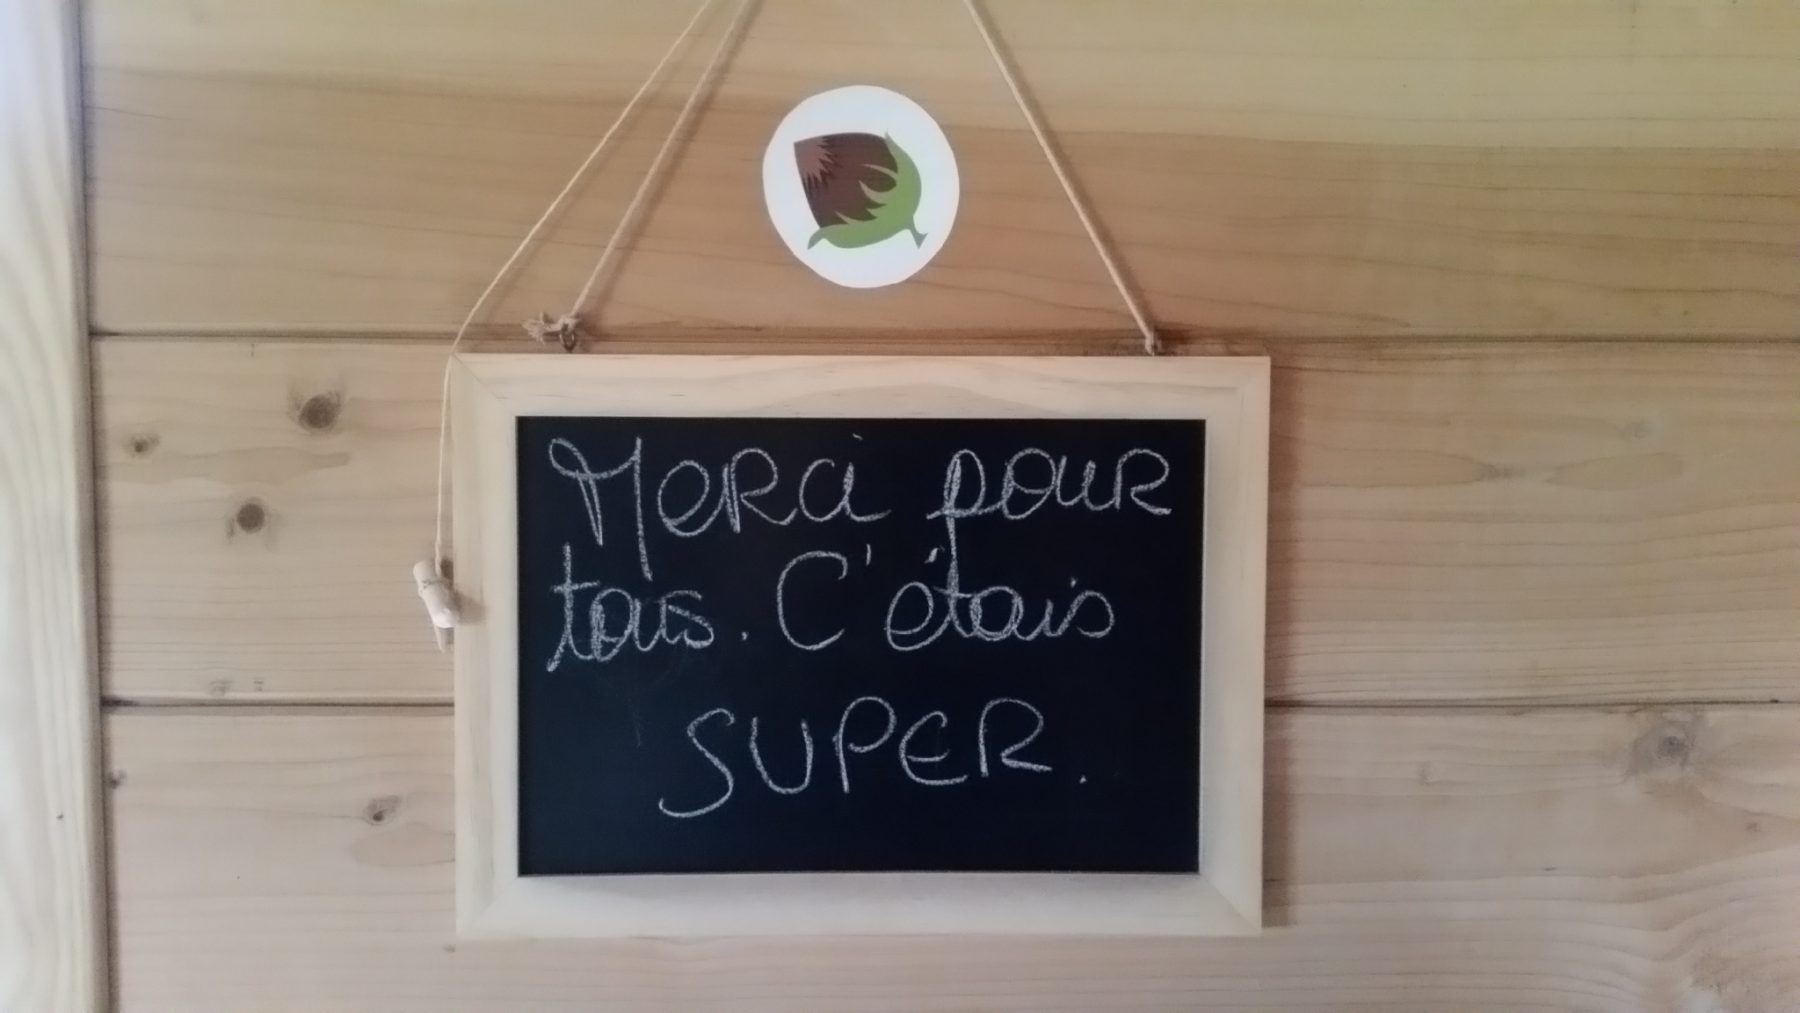 Merci pour
tous. C'étais
SUPER.